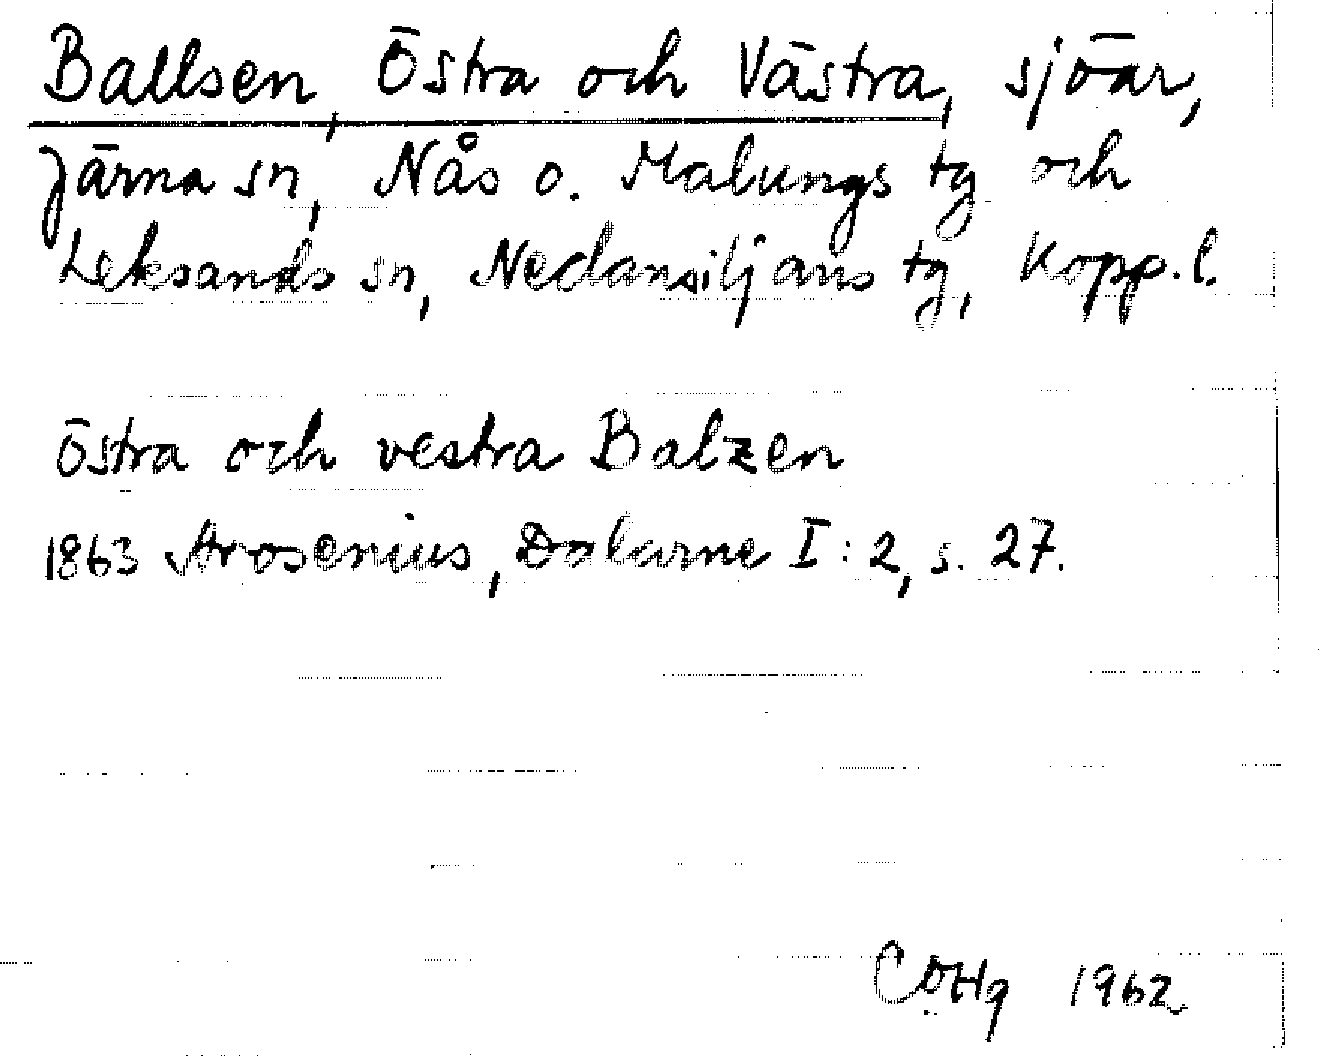 Ballsen, Östra och Västra, sjöar,
Järna sn, Nås o. Malungs tg och
Leksands sn, Nedansiljans tg, Kopp. l.
Östra och vestra Balzen
1863 Arosenius, Dalarne I: 2, s. 27.
CÖHg 1962